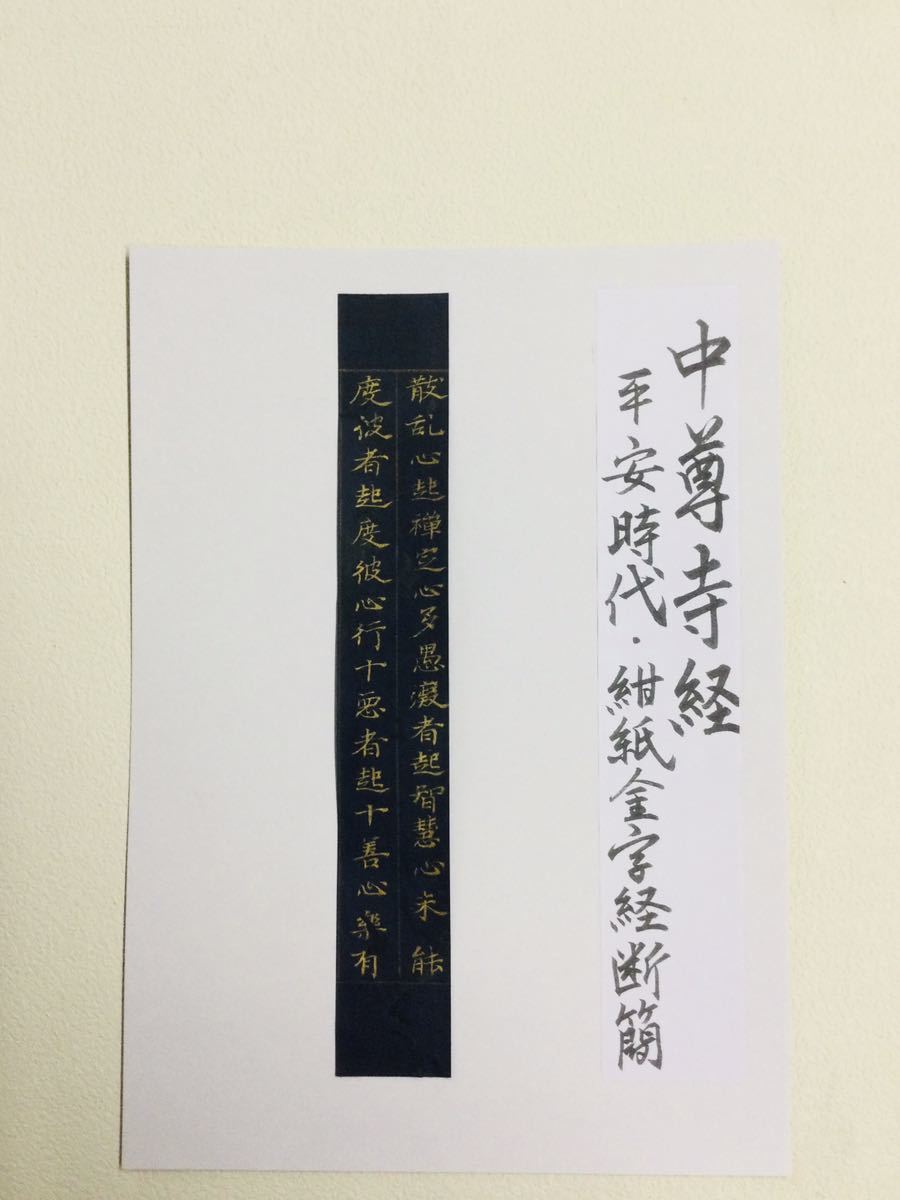 中尊寺経
平安時代・紺紙金字経断簡
散乱心起禅定心多愚癡者起智慧心未能
度彼者起度彼心行十悪者起十善心樂有